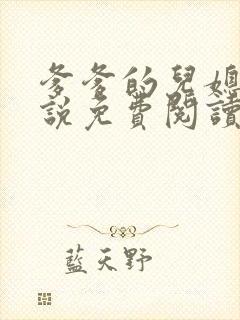 爹爹的兒媳
說免費閱讀
藍天野